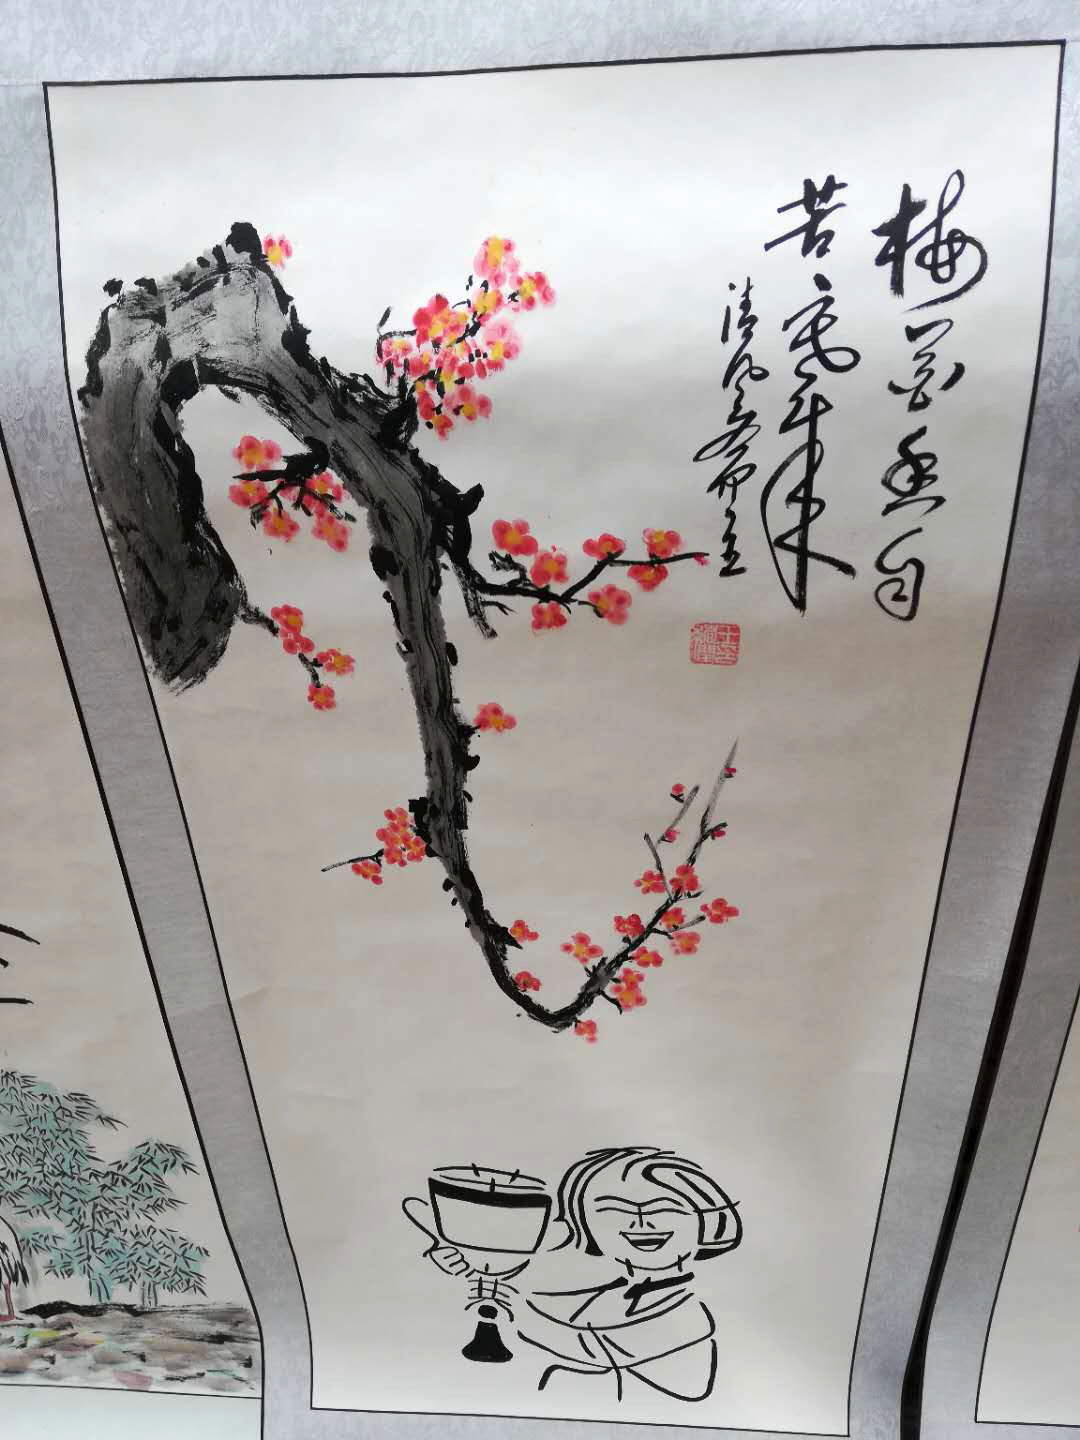 梅花香自
苦寒来
清风